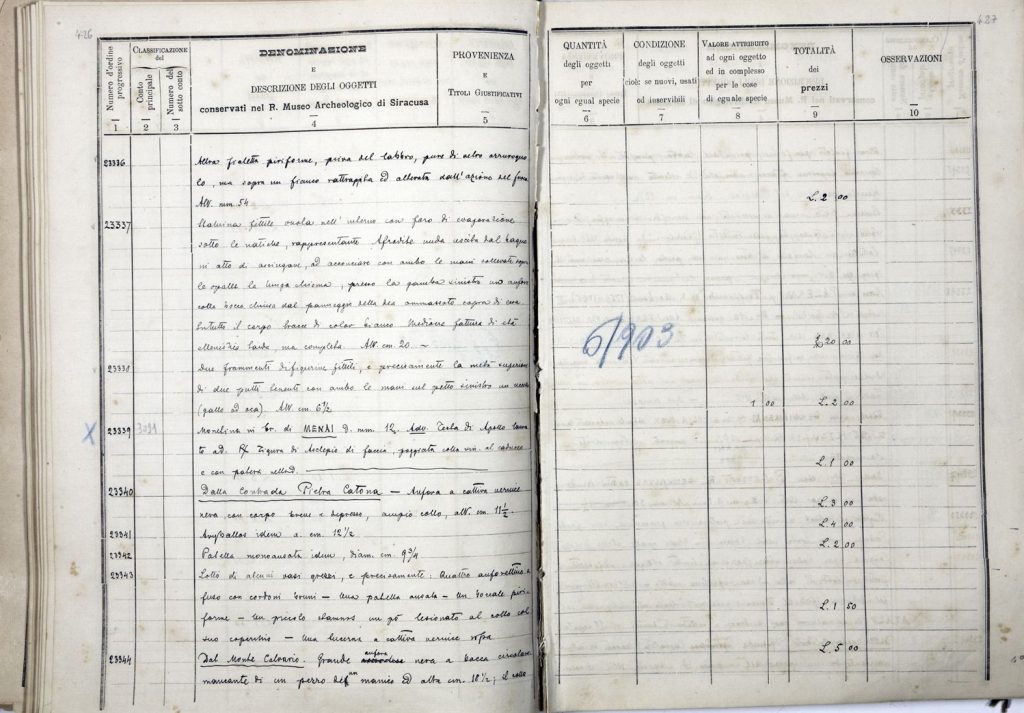 426
427
Numero d'ordine progressivo
CLASSIFICAZIONE del
Conto principale
Numero del sotto conto
DENOMINAZIONE
E
DESCRIZIONE DEGLI OGGETTI
conservati nel R. Museo Archeologico di Siracusa
PROVENIENZA
E
TITOLI GIUSTIFICATIVI
QUANTITÀ
degli oggetti
per
ogni egual specie
CONDIZIONE
degli oggetti
cioè: se nuovi, usati
od inservibili
VALORE ATTRIBUITO
ad ogni oggetto
ed in complesso
per le cose
di eguale specie
TOTALITÀ
dei
prezzi
OSSERVAZIONI
1 2 3 4 5 6 7 8 9 10
23336 Altra fialetta piriforme, priva del labbro, pure di vetro azzurrogno
lo, ma sopra un fianco rattrappita ed alterata dall'azione del fuoco
Alt. mm. 54 L. 2 00
23337 Statuina fittile vuota nell'interno con foro di evaporazione
sotto le natiche, rappresentante Afrodite nuda uscita dal bagno
in atto di asciugare, ad acconciare con ambo le mani sollevate sopra
le spalle la lunga chioma, presso la gamba sinistra un'anfora
colla bocca chiusa dal panneggio della dea ammassato sopra di essa
Tutto il corpo tracce di color bianco Mediocre fattura di età
ellenistica tarda ma completa. Alt. cm. 20. ~ L. 20 00
6/903
23338 Due frammenti di figurine fittili, e precisamente la metà superiore
di due putti tenenti con ambo le mani sul petto sinistro un
(gallo od oca). Alt. cm. 6½ 1 00 L. 2 00
X 23339 3091 Monetina in br. di MENAI D. mm. 12. Adv. Testa di Apollo laurea
to ad. Rx Figura di Asclepio di faccia, poggiata colla
e con patera L. 1 00
23340 Dalla Contrada Pietra Catona — Anfora a cattiva vernice
nera, con corpo breve e depresso, ampio collo, alt. cm. 11½ L. 3 00
23341 Aryballos idem a. cm. 12½ L. 4 00
23342 Patella monoansata idem, diam. cm. 9¾ L. 2 00
23343 Lotto di alcuni vasi grezzi, e precisamente: Quattro anforettine a
fuso con cordoni bruni — Una patella ansata — Un boccale piri
forme — Un piccolo stamnos un pò lesionato al collo col L. 1 50
suo coperchio — Una lucerna a cattiva vernice
23344 Dal Monte Calvario. Grande anfora nera a bocca circolare L. 5 00
mancante di un pezzo del un manico ed alta cm. 18½; il collo